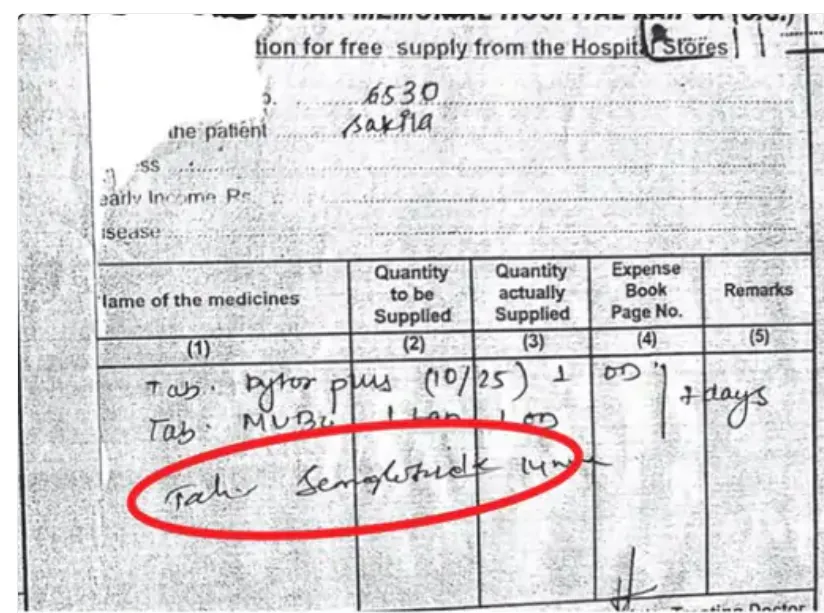 MEMORIAL HOSPITAL
tion for free supply from the Hospital Stores
6530
the patient Sakila
ess
early Income Rs.
isease
Name of the medicines Quantity to be Supplied Quantity actually Supplied Expense Book Page No. Remarks
(1) (2) (3) (4) (5)
Tab. Dytor plus (10/25) 1 OD
7 days
Tab. 1 OD
Tab
Treating Doctor